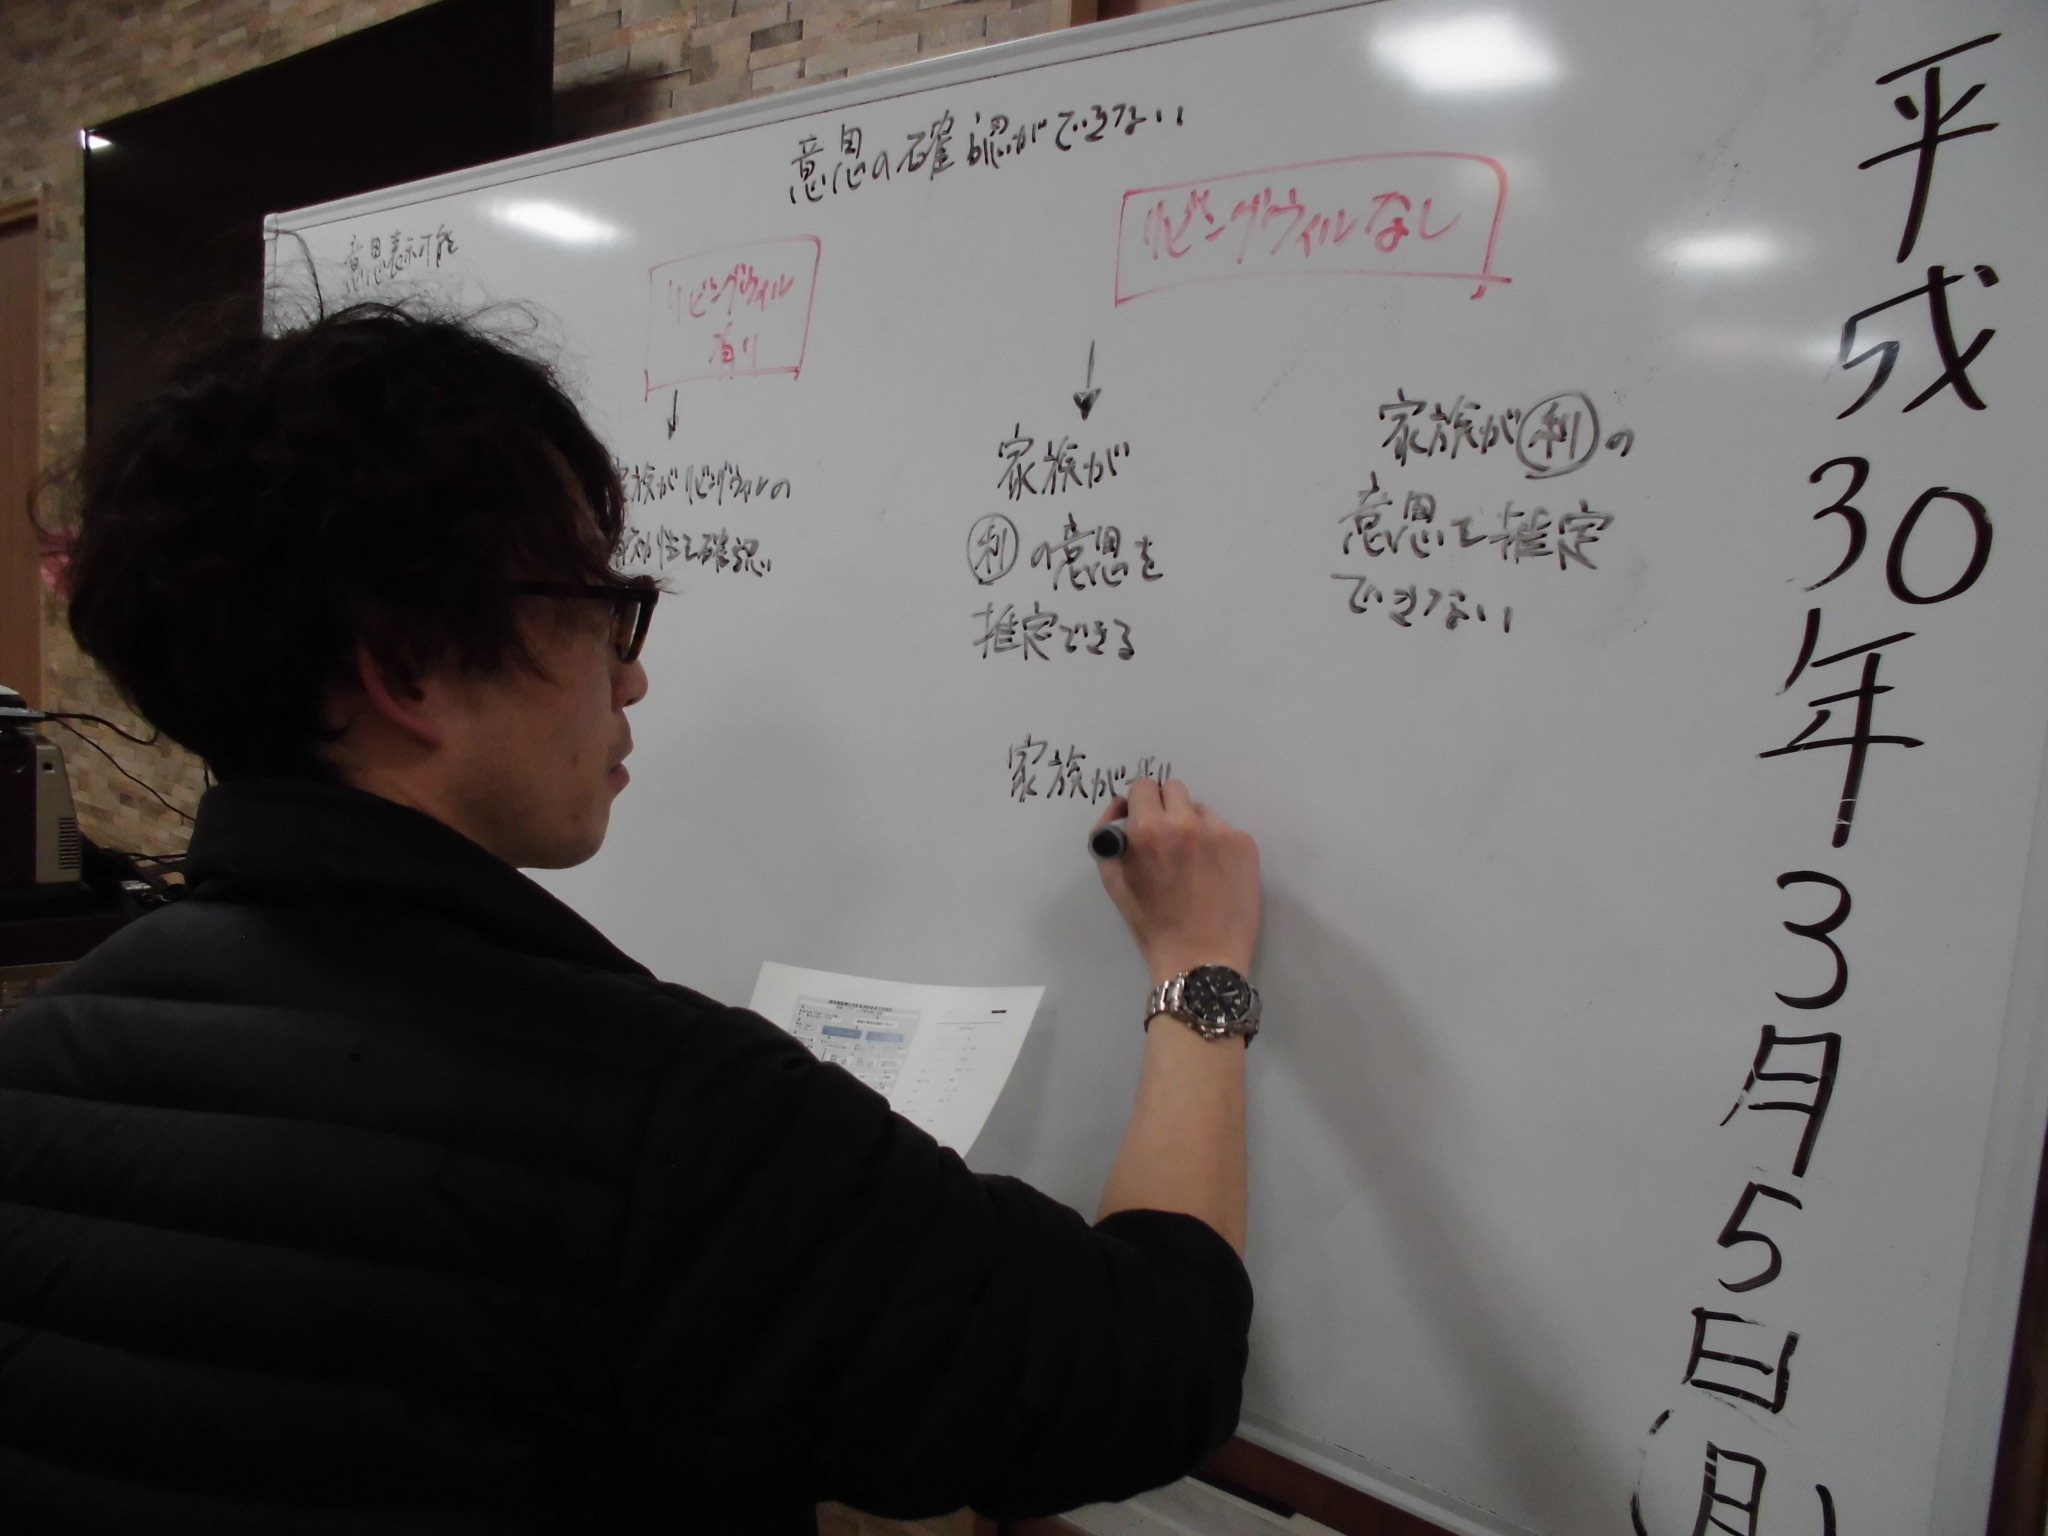 意思の確認ができない
意思表示可能
リビングウィル
有り
リビングウィルなし
家族がリビングウィルの
有効性を確認
家族が
利の意思を
推定できる
家族が利の
意思を推定
できない
家族が
平成30年3月5日(月)